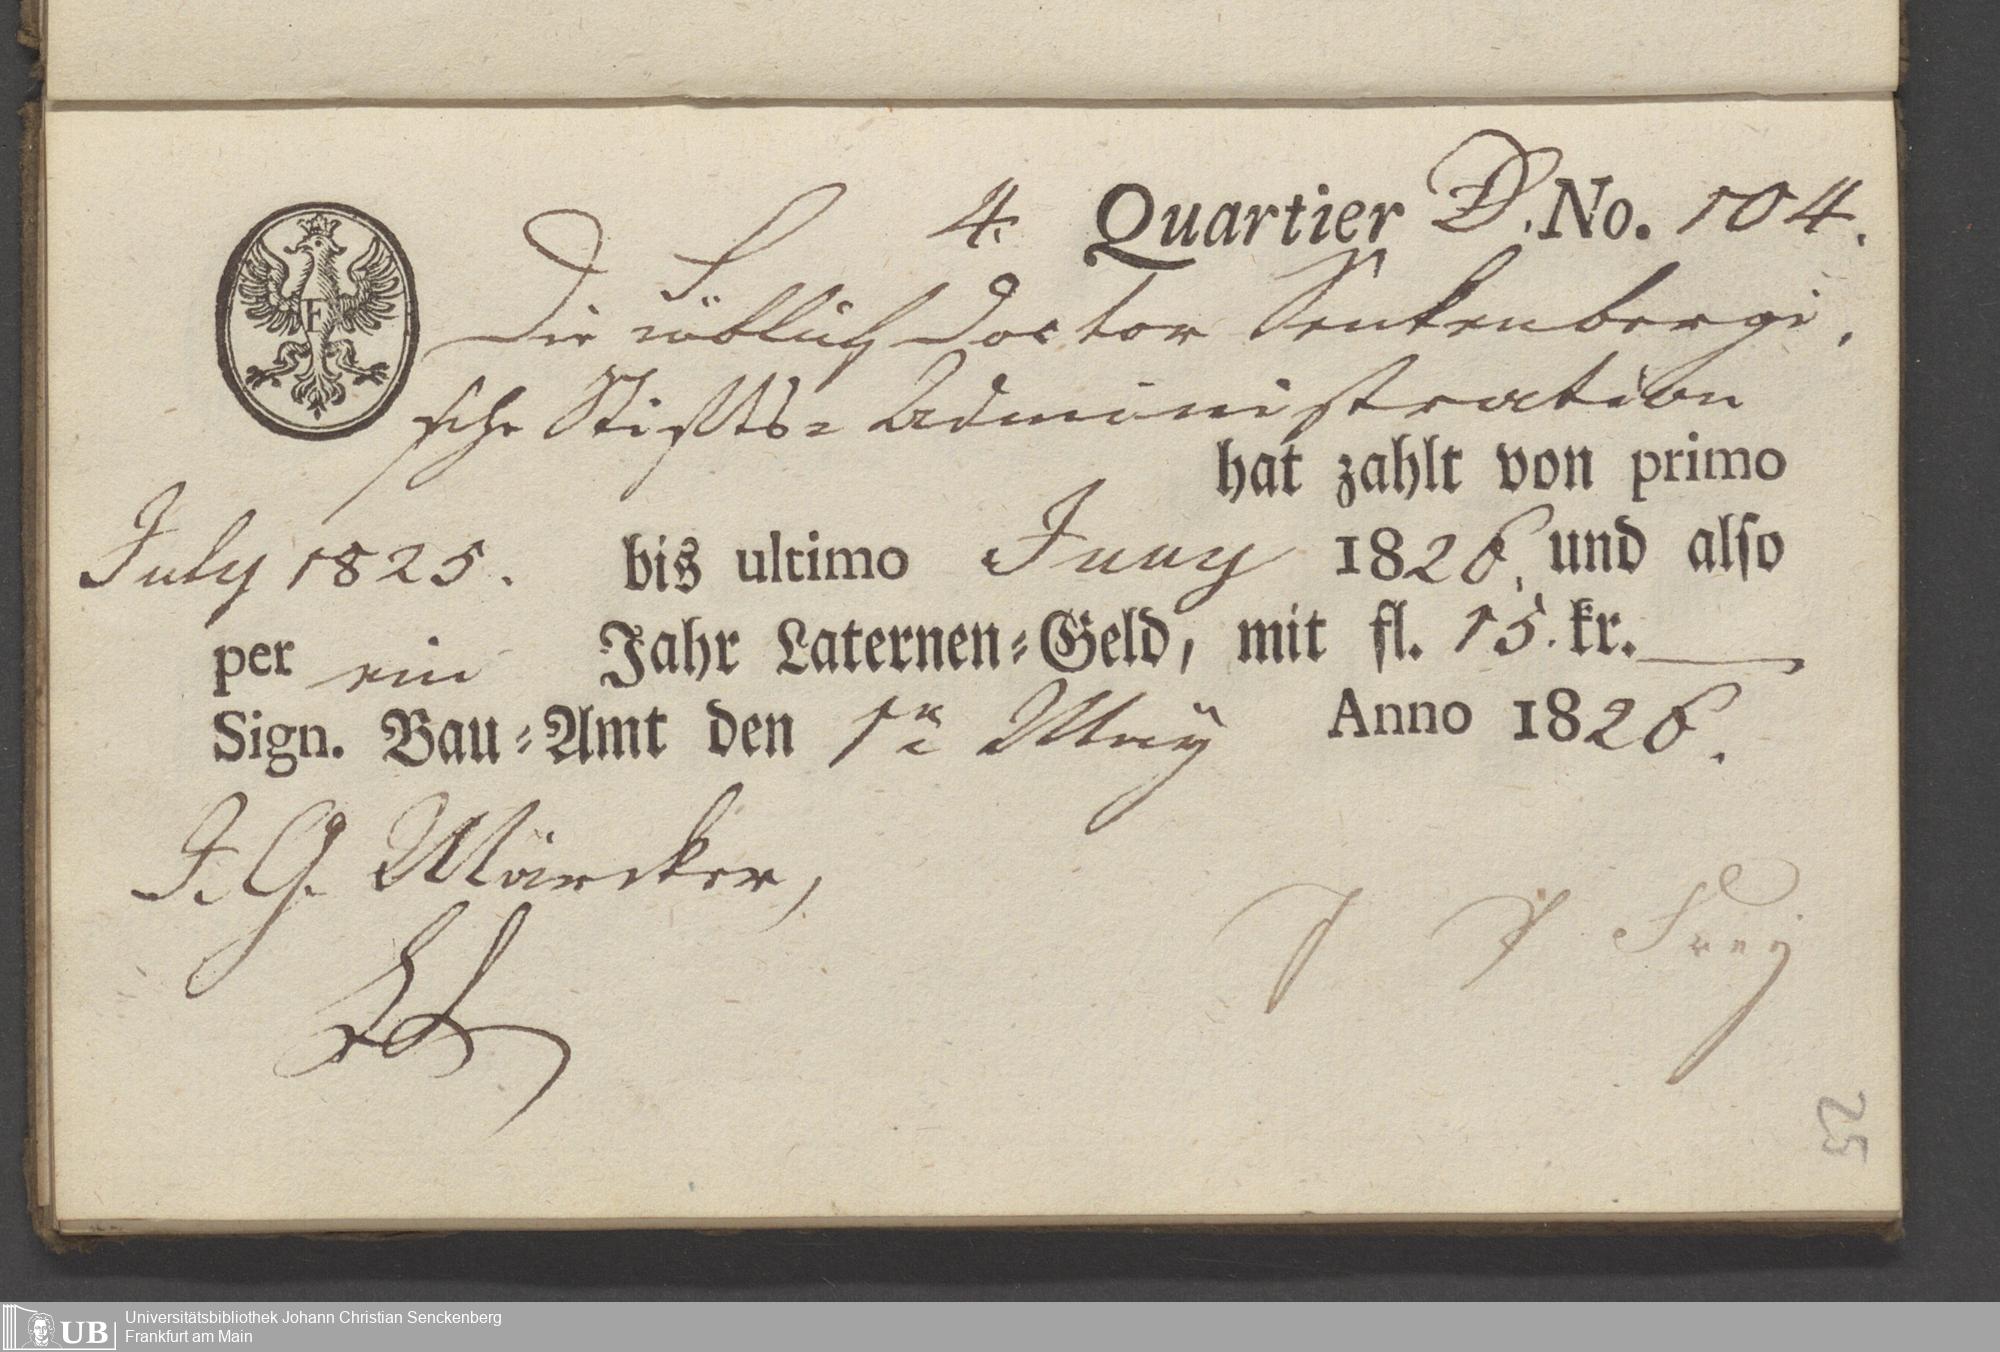 4. Quartier D. No. 104.
Die Löblich Doctor Senkenbergi,
sche Stiffts= Administration
hat zahlt von primo
July 1825. bis ultimo Juny 1826. und also
per ein Jahr Laternen=Geld, mit fl. 15. kr.
Sign. Bau=Amt den 1n May Anno 1826.
J. G. Märcker,
J J Frey
25
F
Universitätsbibliothek Johann Christian Senckenberg
UB
Frankfurt am Main